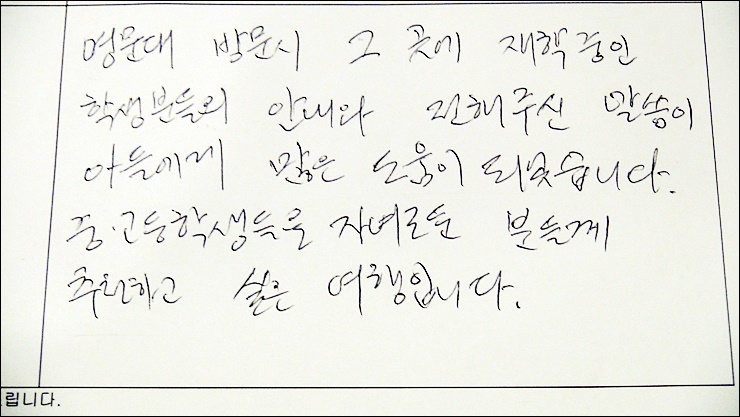 명문대 방문시 그 곳에 재학중인
학생분들의 안내와 전해주신 말씀이
아들에게 많은 도움이 되었습니다.
중·고등학생들을 자녀로둔 분들께
추천하고 싶은 여행입니다.
립니다.